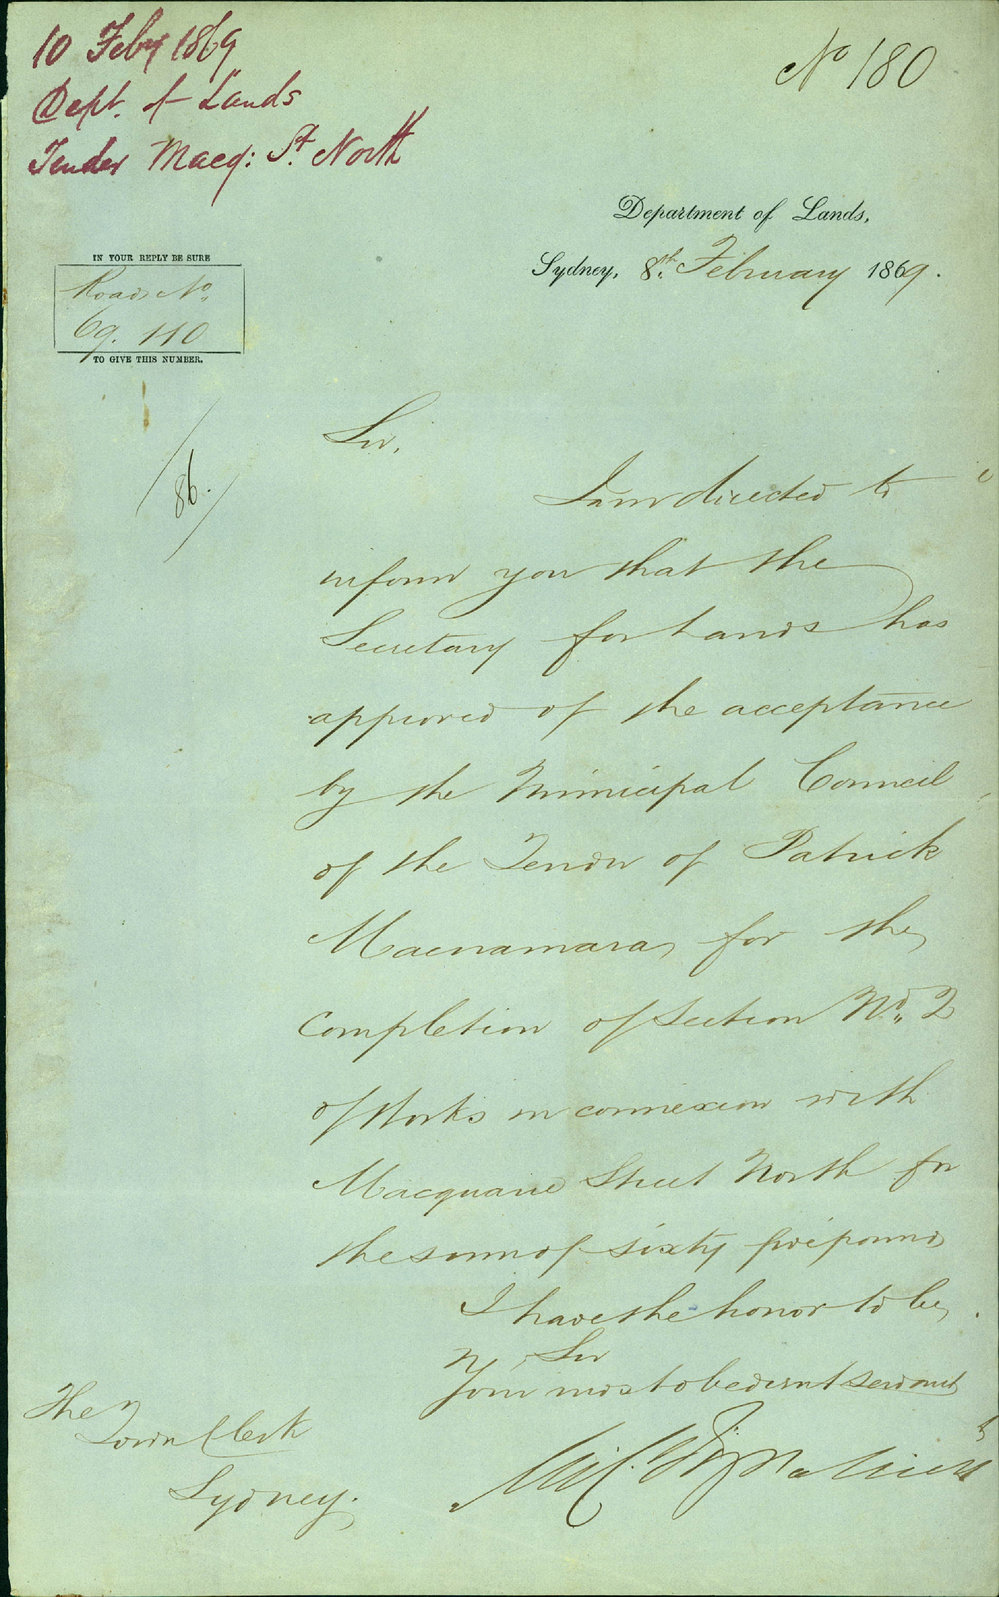 10 Feby 1869
Dept. of Lands
Tender Macq: St. North
No 180
Department of Lands,
Sydney, 8th February 1869.
IN YOUR REPLY BE SURE
Roads No.
69. 110
TO GIVE THIS NUMBER.
86.
Sir,
I am directed to
inform you that the
Secretary for Lands has
approved of the acceptance
by the Municipal Council
of the Tender of Patrick
Macnamara, for the
completion of Section No. 2
of Works in connexion with
Macquarie Street North for
the sum of sixty five pounds
I have the honor to be,
Sir
Your most obedient servant
Mic. Fitzpatrick
The
Town Clerk
Sydney.